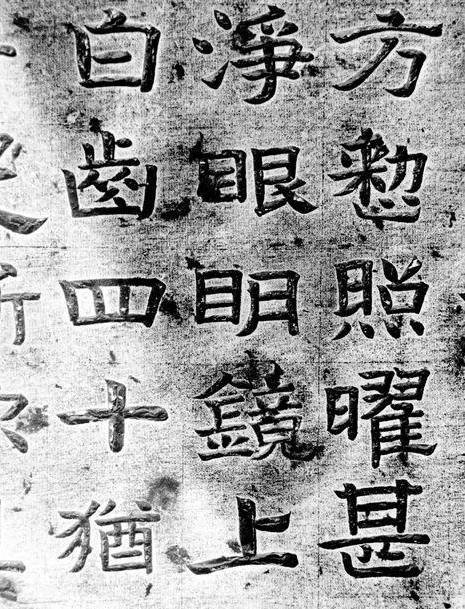 方整照曜甚
淨眼眀鏡上
白齒四十猶